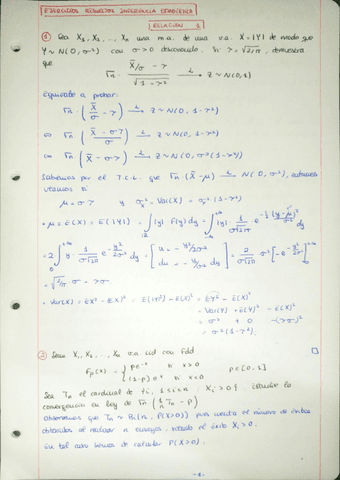 EJERCICIOS RESUELTOS INFERENCIA ESTADÍSTICA
RELACIÓN
① Sea X₁, X₂, ..., Xₙ una m.a. de una v.a. X = |Y| de modo que
Y ~ N(0, σ²) con σ>0 desconocido. Si γ = √(2/π), demuestra
que
√n · (X̄/σ - γ)/√(1-γ²) →ᴸ Z ~ N(0,1)
Equivale a probar:
√n · (X̄/σ - γ) →ᴸ Z ~ N(0, 1-γ²)
⇔ √n (X̄ - σγ)/σ →ᴸ Z ~ N(0, 1-γ²)
⇔ √n (X̄ - σγ) →ᴸ Z ~ N(0, σ²(1-γ²))
Sabemos por el T.C.L. que √n (X̄ - μ) →ᴸ N(0, σ²), entonces
veamos si
μ = σγ y σₓ² = Var(X) = σ²(1-γ²)
• μ = E(X) = E(|Y|) = ∫ |y| f(y) dy = ∫ |y| · 1/(σ√2π) e^(-½ (y-μ)²/σ²) dy
= 2 ∫₀^(+∞) y · 1/(σ√2π) e^(-y²/2σ²) dy = [u = -y²/2σ² du = -y/σ² dy] = 2/(σ√2π) σ² [-e^(-y²/2σ²)]₀^(+∞)
= √(2/π) σ = γσ
• Var(X) = EX² - E(X)² = E(|Y|²) - E(X)² = EY² - E(X)²
= Var(Y) + E(Y)² - E(X)²
= σ² + 0 - (γσ)²
= σ²(1-γ²)
② Sean X₁, X₂, ..., Xₙ v.a. iid con fdd
x > 0
x < 0
p ∈ [0,1]
Sea Tₙ el cardinal de 1≤i≤n Xᵢ > 0 }. Estudie la
convergencia en ley de √n (1/n Tₙ - p)
Observemos que Tₙ ~ Bi(n, P(X>0)) pues cuenta el número de éxitos
obtenidos al realizar n ensayos, siendo el éxito Xᵢ > 0.
En tal caso hemos de calcular P(X>0).
-1-